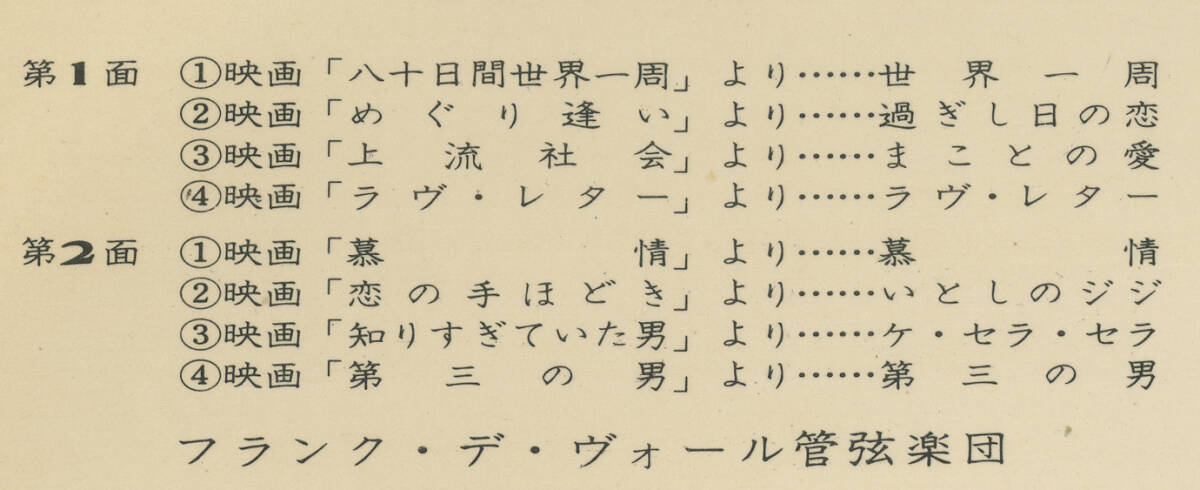 第1面 ①映画「八十日間世界一周」より……世界一周
②映画「めぐり逢い」より……過ぎし日の恋
③映画「上流社会」より……まことの愛
④映画「ラヴ・レター」より……ラヴ・レター
第2面 ①映画「慕情」より……慕情
②映画「恋の手ほどき」より……いとしのジジ
③映画「知りすぎていた男」より……ケ・セラ・セラ
④映画「第三の男」より……第三の男
フランク・デ・ヴォール管弦楽団